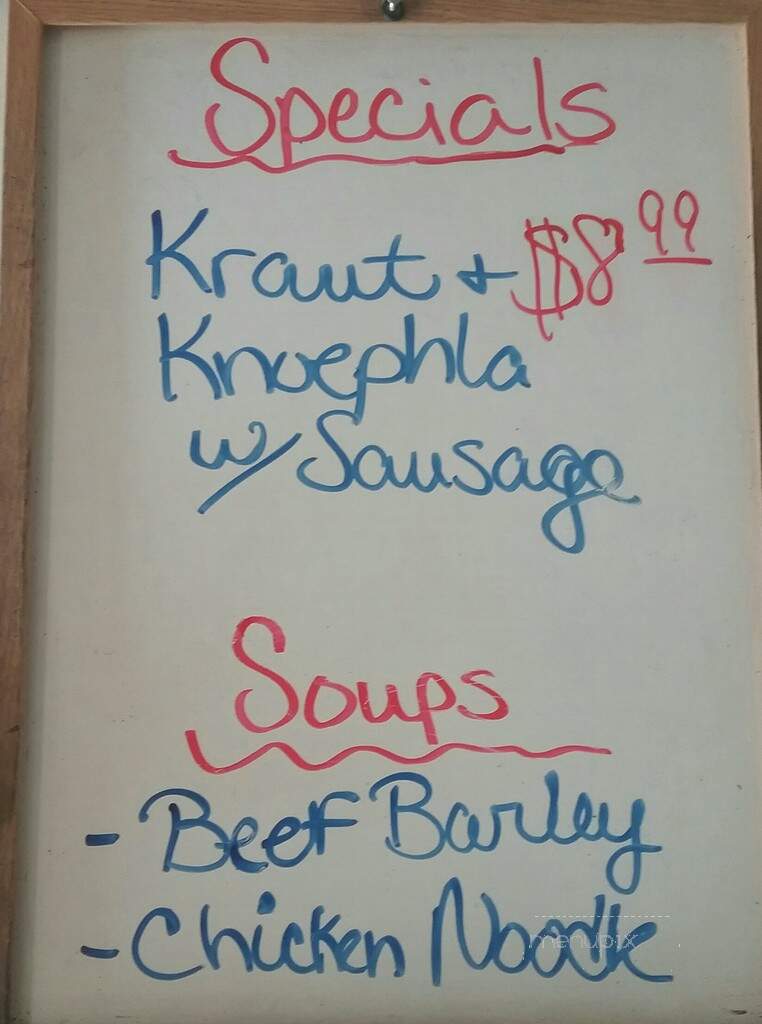 Specials
Kraut + $8.99
Knoephla
w/ Sausage
Soups
- Beef Barley
- Chicken Noodle
menupix